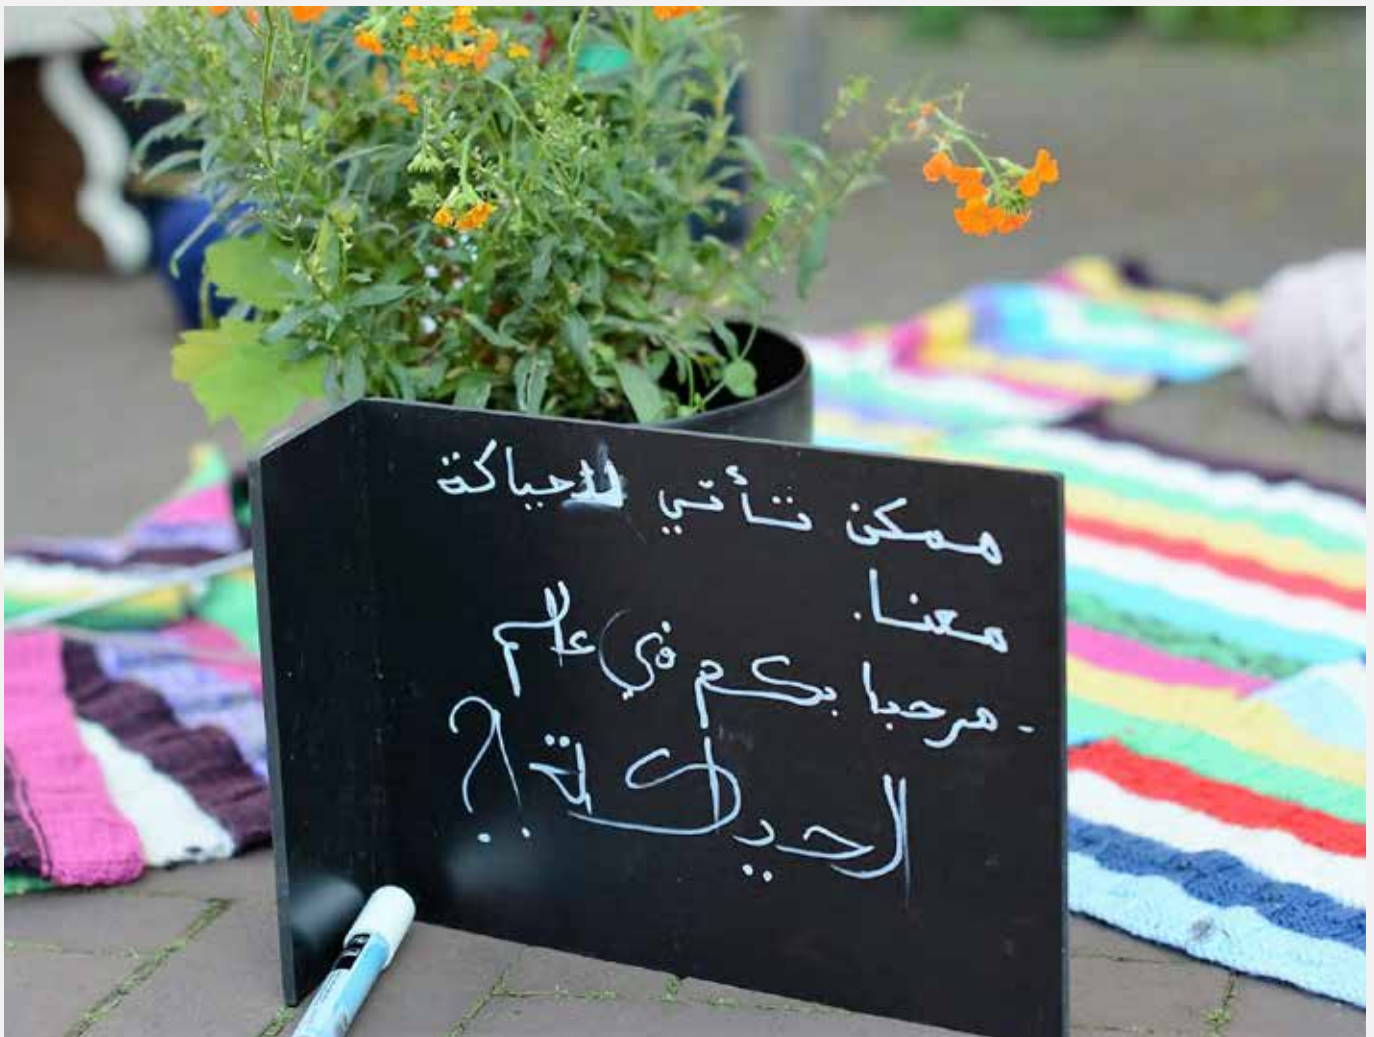 ممكن تأتي للحياكة
معنا.
- مرحبا بكم في عالم
الحياكة؟!